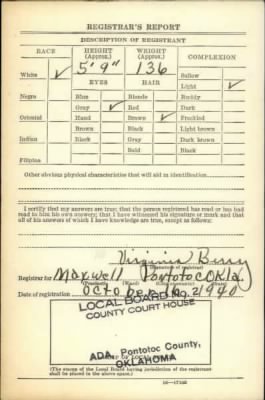 REGISTRAR'S REPORT
DESCRIPTION OF REGISTRANT
RACE HEIGHT (Approx.) WEIGHT (Approx.) COMPLEXION
5' 9" 136
White ✓ EYES HAIR Sallow
Light ✓
Negro Blue Blonde Ruddy
Gray ✓ Red Dark
Oriental Hazel Brown ✓ Freckled
Brown Black Light brown
Indian Black Gray Dark brown
Bald Black
Filipino
Other obvious physical characteristics that will aid in identification
I certify that my answers are true; that the person registered has read or has had
read to him his own answers; that I have witnessed his signature or mark and that
all of his answers of which I have knowledge are true, except as follows:
Virginia Berry
(Signature of registrar)
Registrar for Maxwell Pontotoc Okla
(Precinct) (Ward) (City or county) (State)
Date of registration October 16, 1940
LOCAL BOARD NO. 2
COUNTY COURT HOUSE
ADA, Pontotoc County,
OKLAHOMA
(The stamp of the Local Board having jurisdiction of the registrant
shall be placed in the above space.)